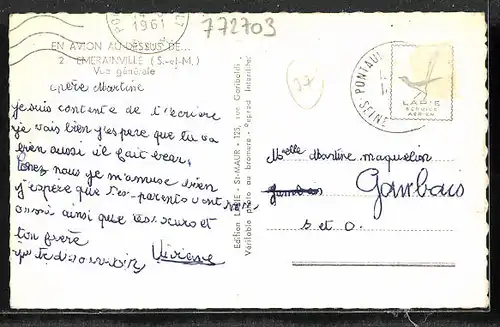 772703
1961
EN AVION AU-DESSUS DE...
2. EMERAINVILLE (S.-et-M.)
Vue générale
chère Martine
je suis contente de t'écrire
je vais bien j'espère que tu va
bien aussi il fait beau
Chez nous je m'amuse bien
j'espère que tes parents vont bien,
aussi ainsi que tes sœurs et
ton frère
Viviane
Edition LAPIE - St-MAUR - 125, rue Garibaldi
Véritable photo au bromure - Reprod. Interdite
37
PONTAULT
SEINE
LAPIE
SERVICE
AERIEN
Melle Martine maquelion
Gambais
Gambais
S et O.